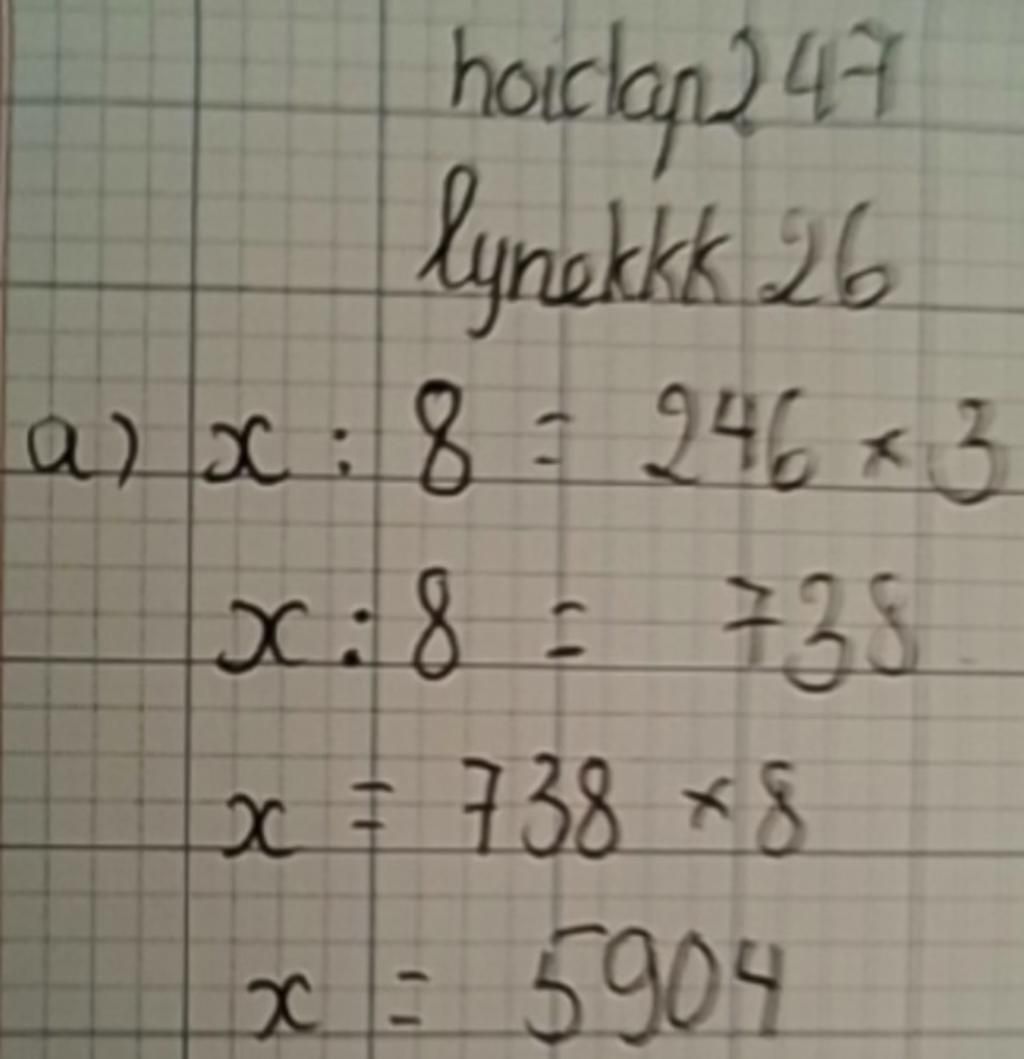 hoidap247
lynekkk26
a) x : 8 = 246 × 3
x : 8 = 738
x = 738 × 8
x = 5904